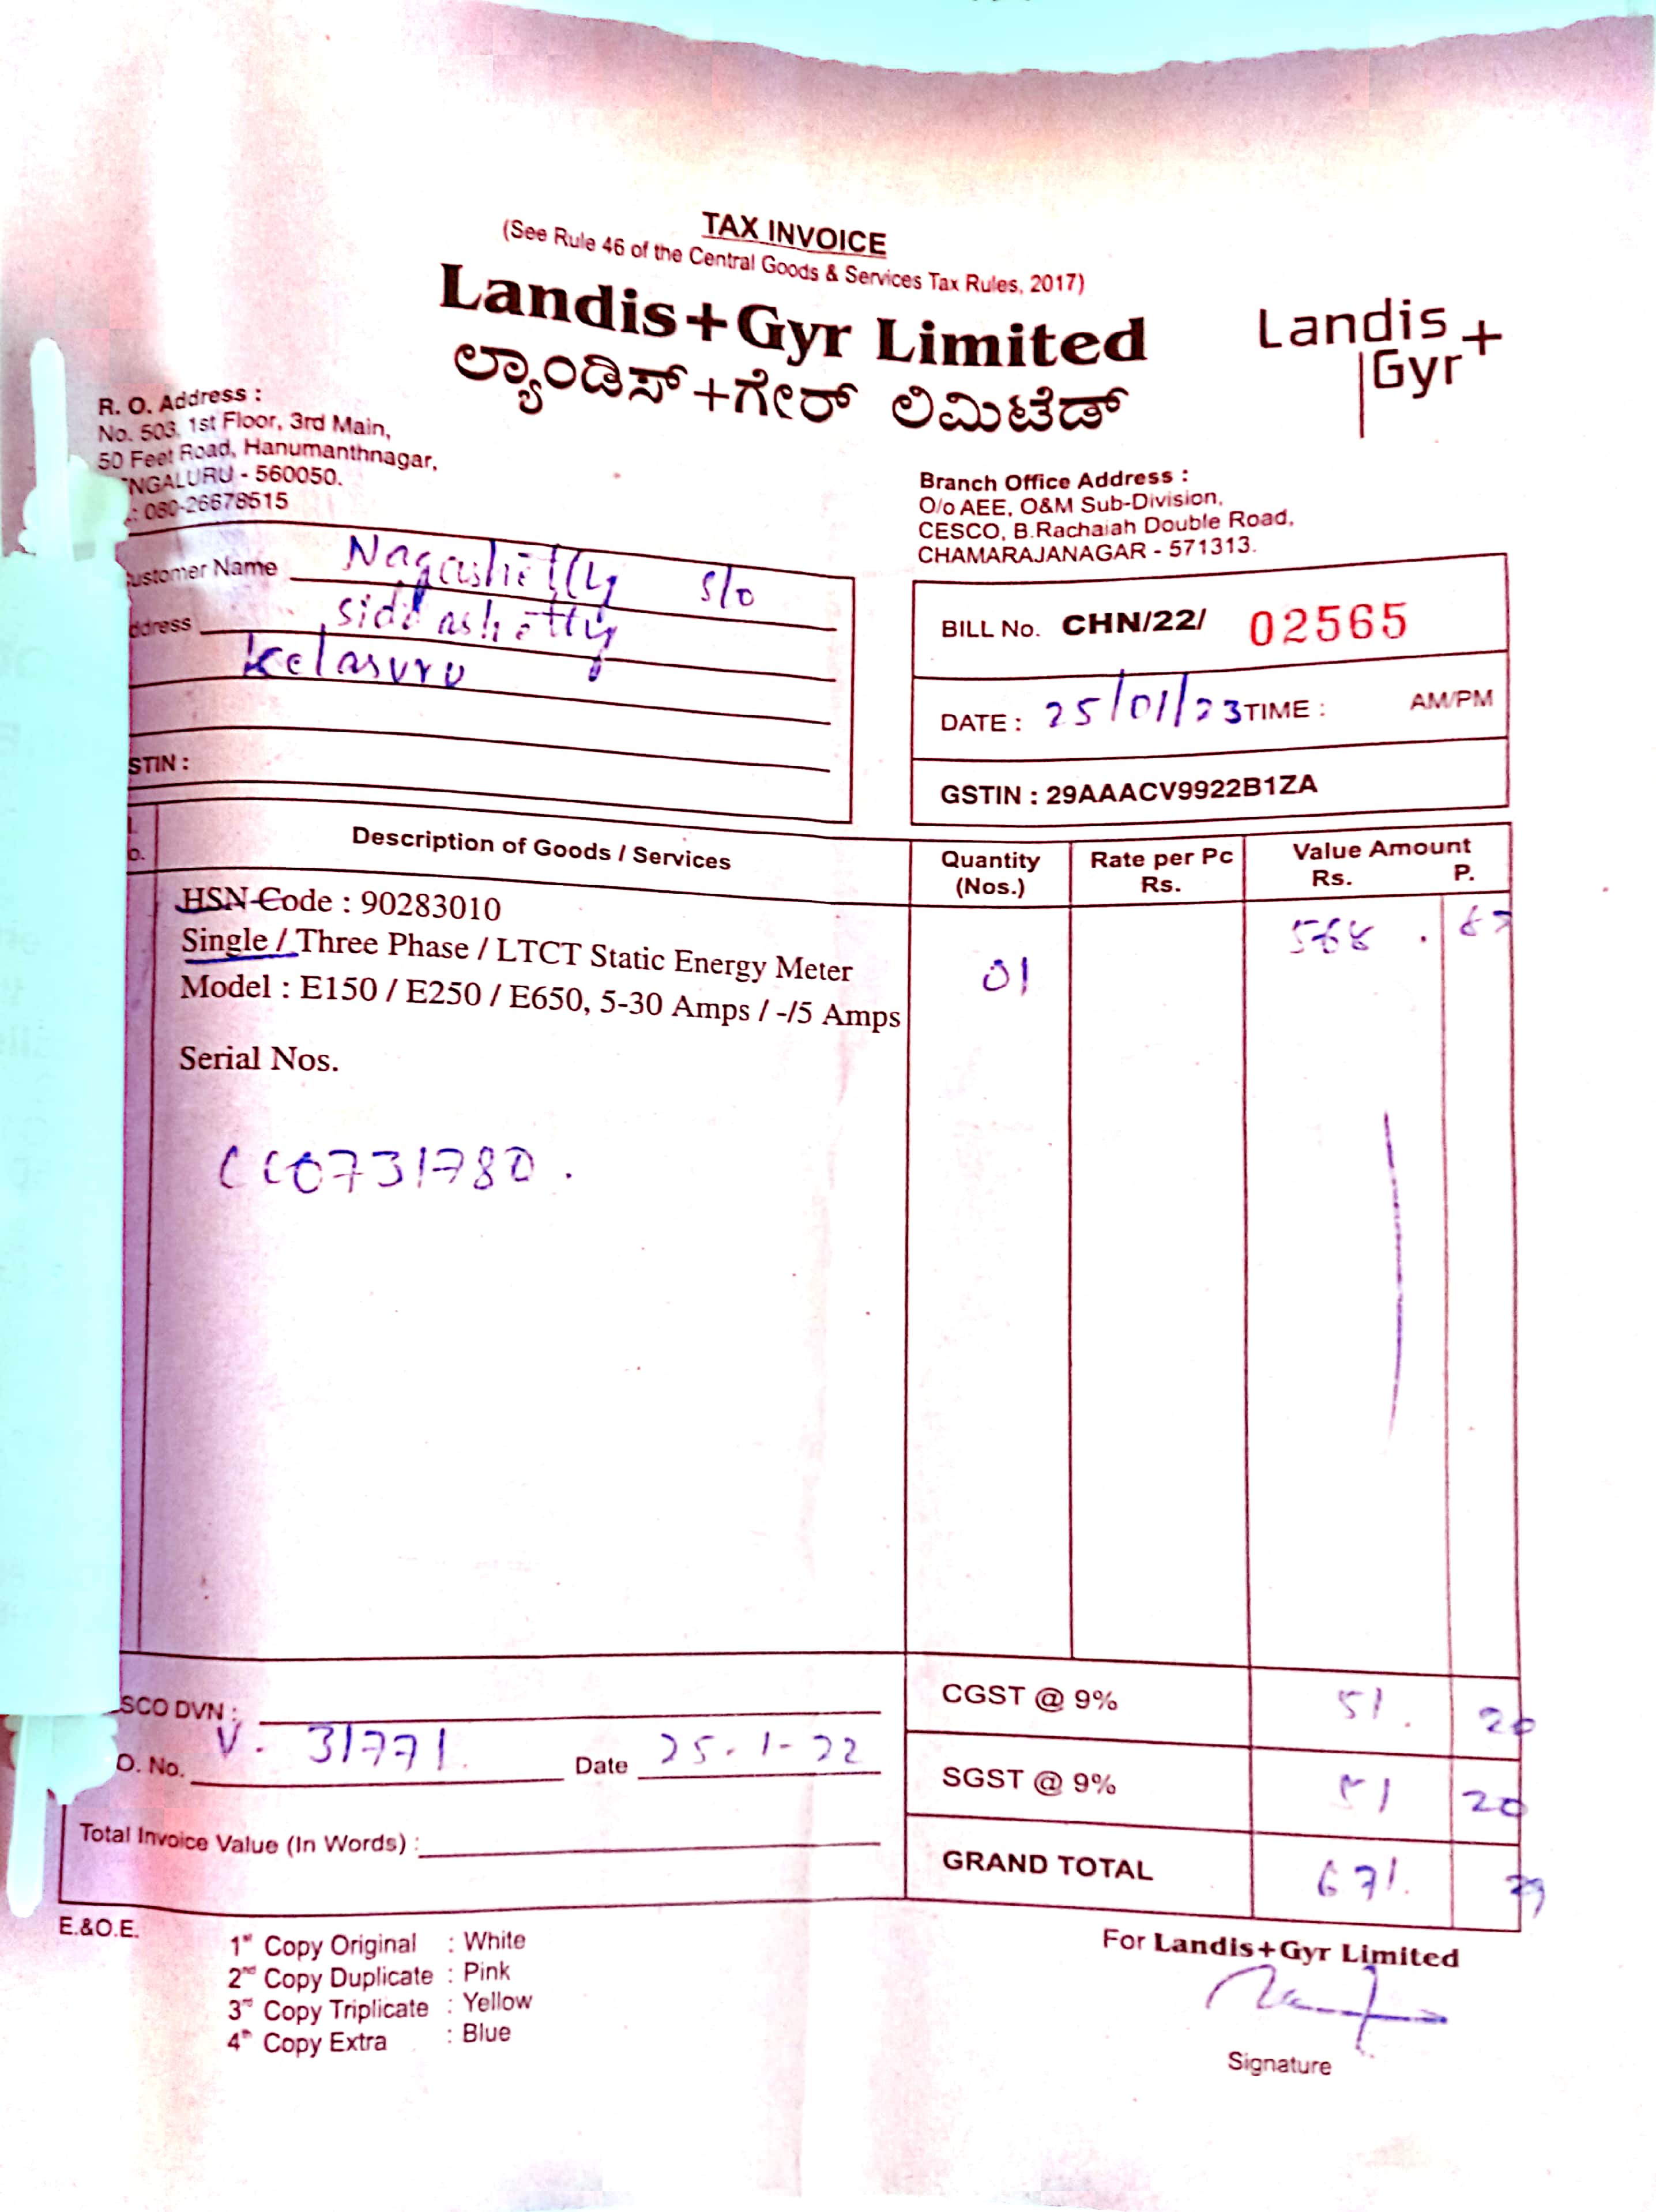 TAX INVOICE
(See Rule 46 of the Central Goods & Services Tax Rules, 2017)
Landis+Gyr Limited
ಲ್ಯಾಂಡಿಸ್+ಗೇರ್ ಲಿಮಿಟೆಡ್
Landis+
Gyr
R. O. Address :
No. 503, 1st Floor, 3rd Main,
50 Feet Road, Hanumanthnagar,
NGALURU - 560050.
: 080-26678515
Branch Office Address :
O/o AEE, O&M Sub-Division,
CESCO, B.Rachaiah Double Road,
CHAMARAJANAGAR - 571313.
ustomer Name Nagashetty s/o
ddress siddashetty
Kelasuru
STIN :
BILL No. CHN/22/ 02565
DATE : 25/01/23 TIME : AM/PM
GSTIN : 29AAACV9922B1ZA
o. Description of Goods / Services Quantity (Nos.) Rate per Pc Rs. Value Amount Rs. P.
HSN Code : 90283010 568 .
Single / Three Phase / LTCT Static Energy Meter 01
Model : E150 / E250 / E650, 5-30 Amps / -/5 Amps
Serial Nos.
CC0731780 .
SCO DVN :
O. No. V. 31771. Date 25.1-22
Total Invoice Value (In Words) :
CGST @ 9% 51. 20
SGST @ 9% 51 20
GRAND TOTAL 671.
E.&O.E.
1st Copy Original : White
2nd Copy Duplicate : Pink
3rd Copy Triplicate : Yellow
4th Copy Extra : Blue
For Landis+Gyr Limited
Signature